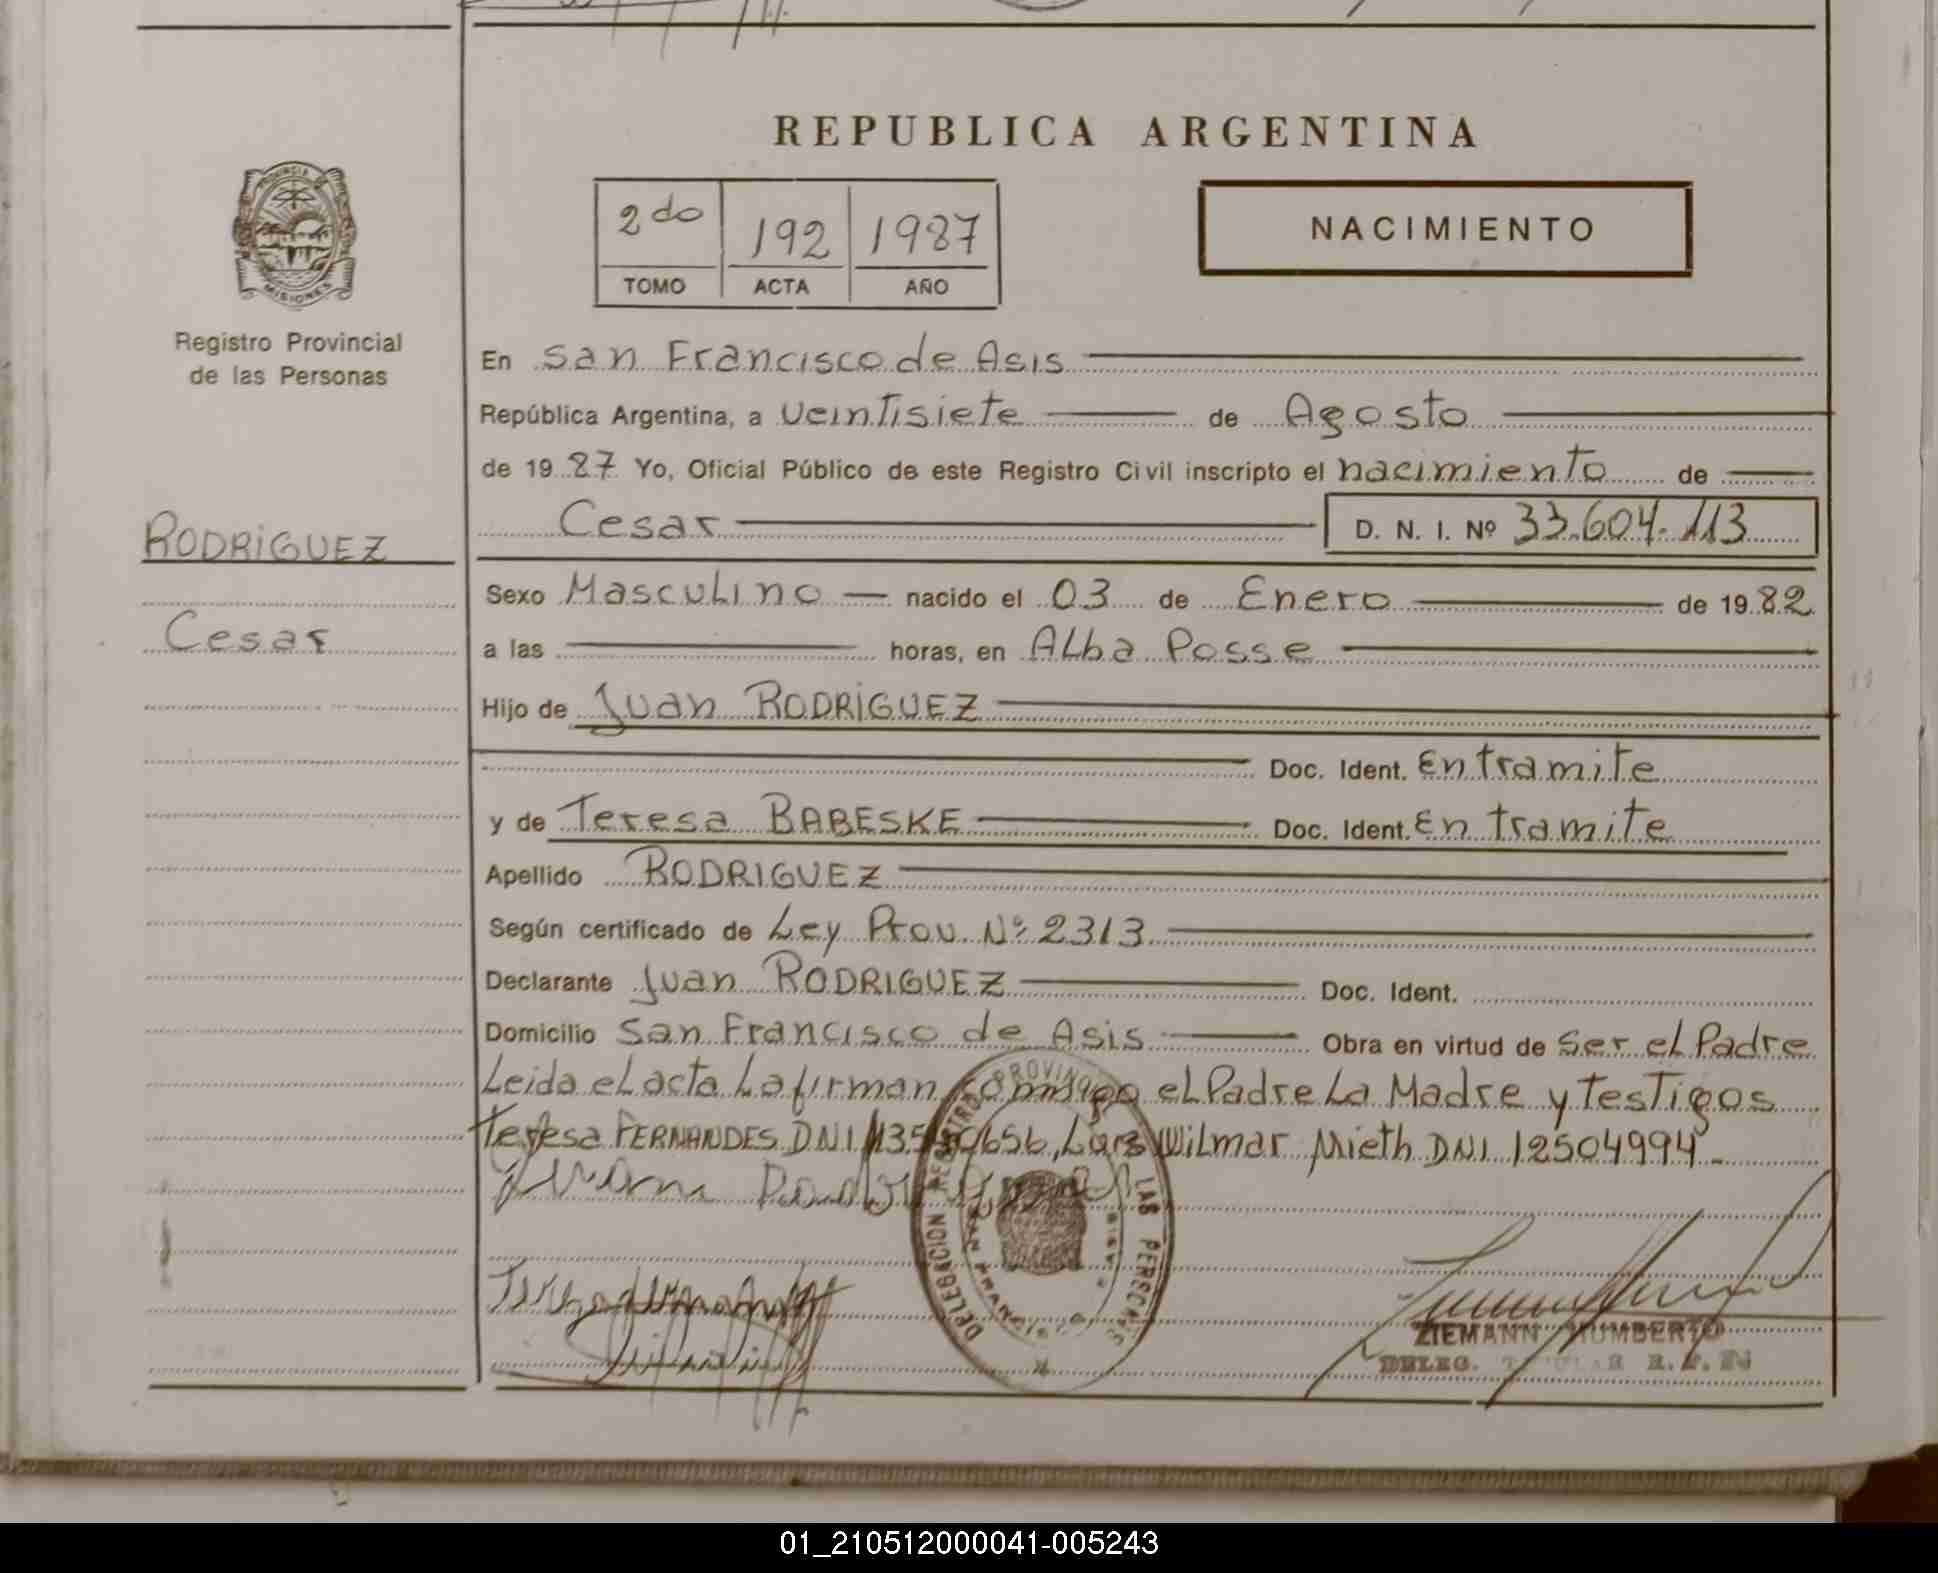 REPUBLICA ARGENTINA
PROVINCIA DE
MISIONES
Registro Provincial
de las Personas
2do 192 1987
TOMO ACTA AÑO
NACIMIENTO
En San Francisco de Asis
República Argentina, a veintisiete de Agosto
de 1987 Yo, Oficial Público de este Registro Civil inscripto el nacimiento de
Cesar D. N. I. Nº 33.604.113
RODRIGUEZ
Cesar
Sexo Masculino nacido el 03 de Enero de 1982
a las horas, en ALba Posse
Hijo de Juan RODRIGUEZ
Doc. Ident. En tramite
y de Teresa BABESKE Doc. Ident. En tramite
Apellido RODRIGUEZ
Según certificado de Ley Prov. Nº 2313
Declarante Juan RODRIGUEZ Doc. Ident.
Domicilio San Francisco de Asis Obra en virtud de Ser el Padre
Leida el acta La firman conmigo el Padre La Madre y testigos
Teresa FERNANDES DNI Wilmar Mieth DNI 12504994
DELEGACION REGISTRO PROVINCIAL LAS PERSONAS
ZIEMANN HUMBERTO
DELEG.
01_210512000041-005243